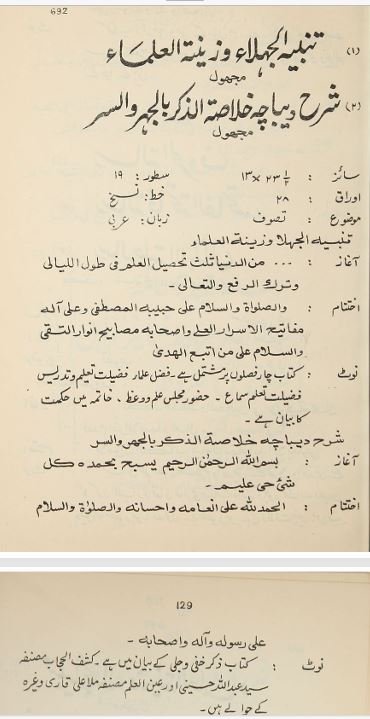 692
(۱) تنبیہ الجہلاء و زینۃ العلماء
مجہول
(۲) شرح دیباچہ خلاصۃ الذکر بالجہر والسر
مجہول
سائز : ۲۳ ۱/۲ × ۱۳ سطور: ۱۹
اوراق : ۲۸ خط: نسخ
موضوع : تصوف زبان: عربی
تنبیہ الجہلا و زینۃ العلماء
آغاز : ... من الدنیا ثلث تحصیل العلم فی طول اللیالی
وترک الرفع والتعالی -
اختتام : والصلواة والسلام علی حبیبہ المصطفی وعلی آلہ
مفاتیح الاسرار العلے واصحابہ مصابیح انوار التقی
والسلام علی من اتبع الھدیٰ
نوٹ : کتاب چار فصلوں پر مشتمل ہے ۔ فضل علماء فضیلت تعلیم و تدریس
فضیلت تعلم سماع ۔ حضور مجلس علم و وعظ ، خاتمہ میں حکمت
کا بیان ہے ۔
شرح دیباچہ خلاصۃ الذکر بالجھر والسر
آغاز : بسم اللہ الرحمٰن الرحیم یسبح بحمدہ کل
شئ حی علیم ۔
اختتام : الحمدللہ علی انعامہ واحسانہ والصلواة والسلام
129
علی رسولہ وآلہ واصحابہ -
نوٹ : کتاب ذکر خفی و جلی کے بیان میں ہے ۔ کشف الحجاب مصنفہ
سید عبداللہ حسینی اور عین العلم مصنفہ ملا علی قاری وغیرہ
کے حوالے ہیں ۔